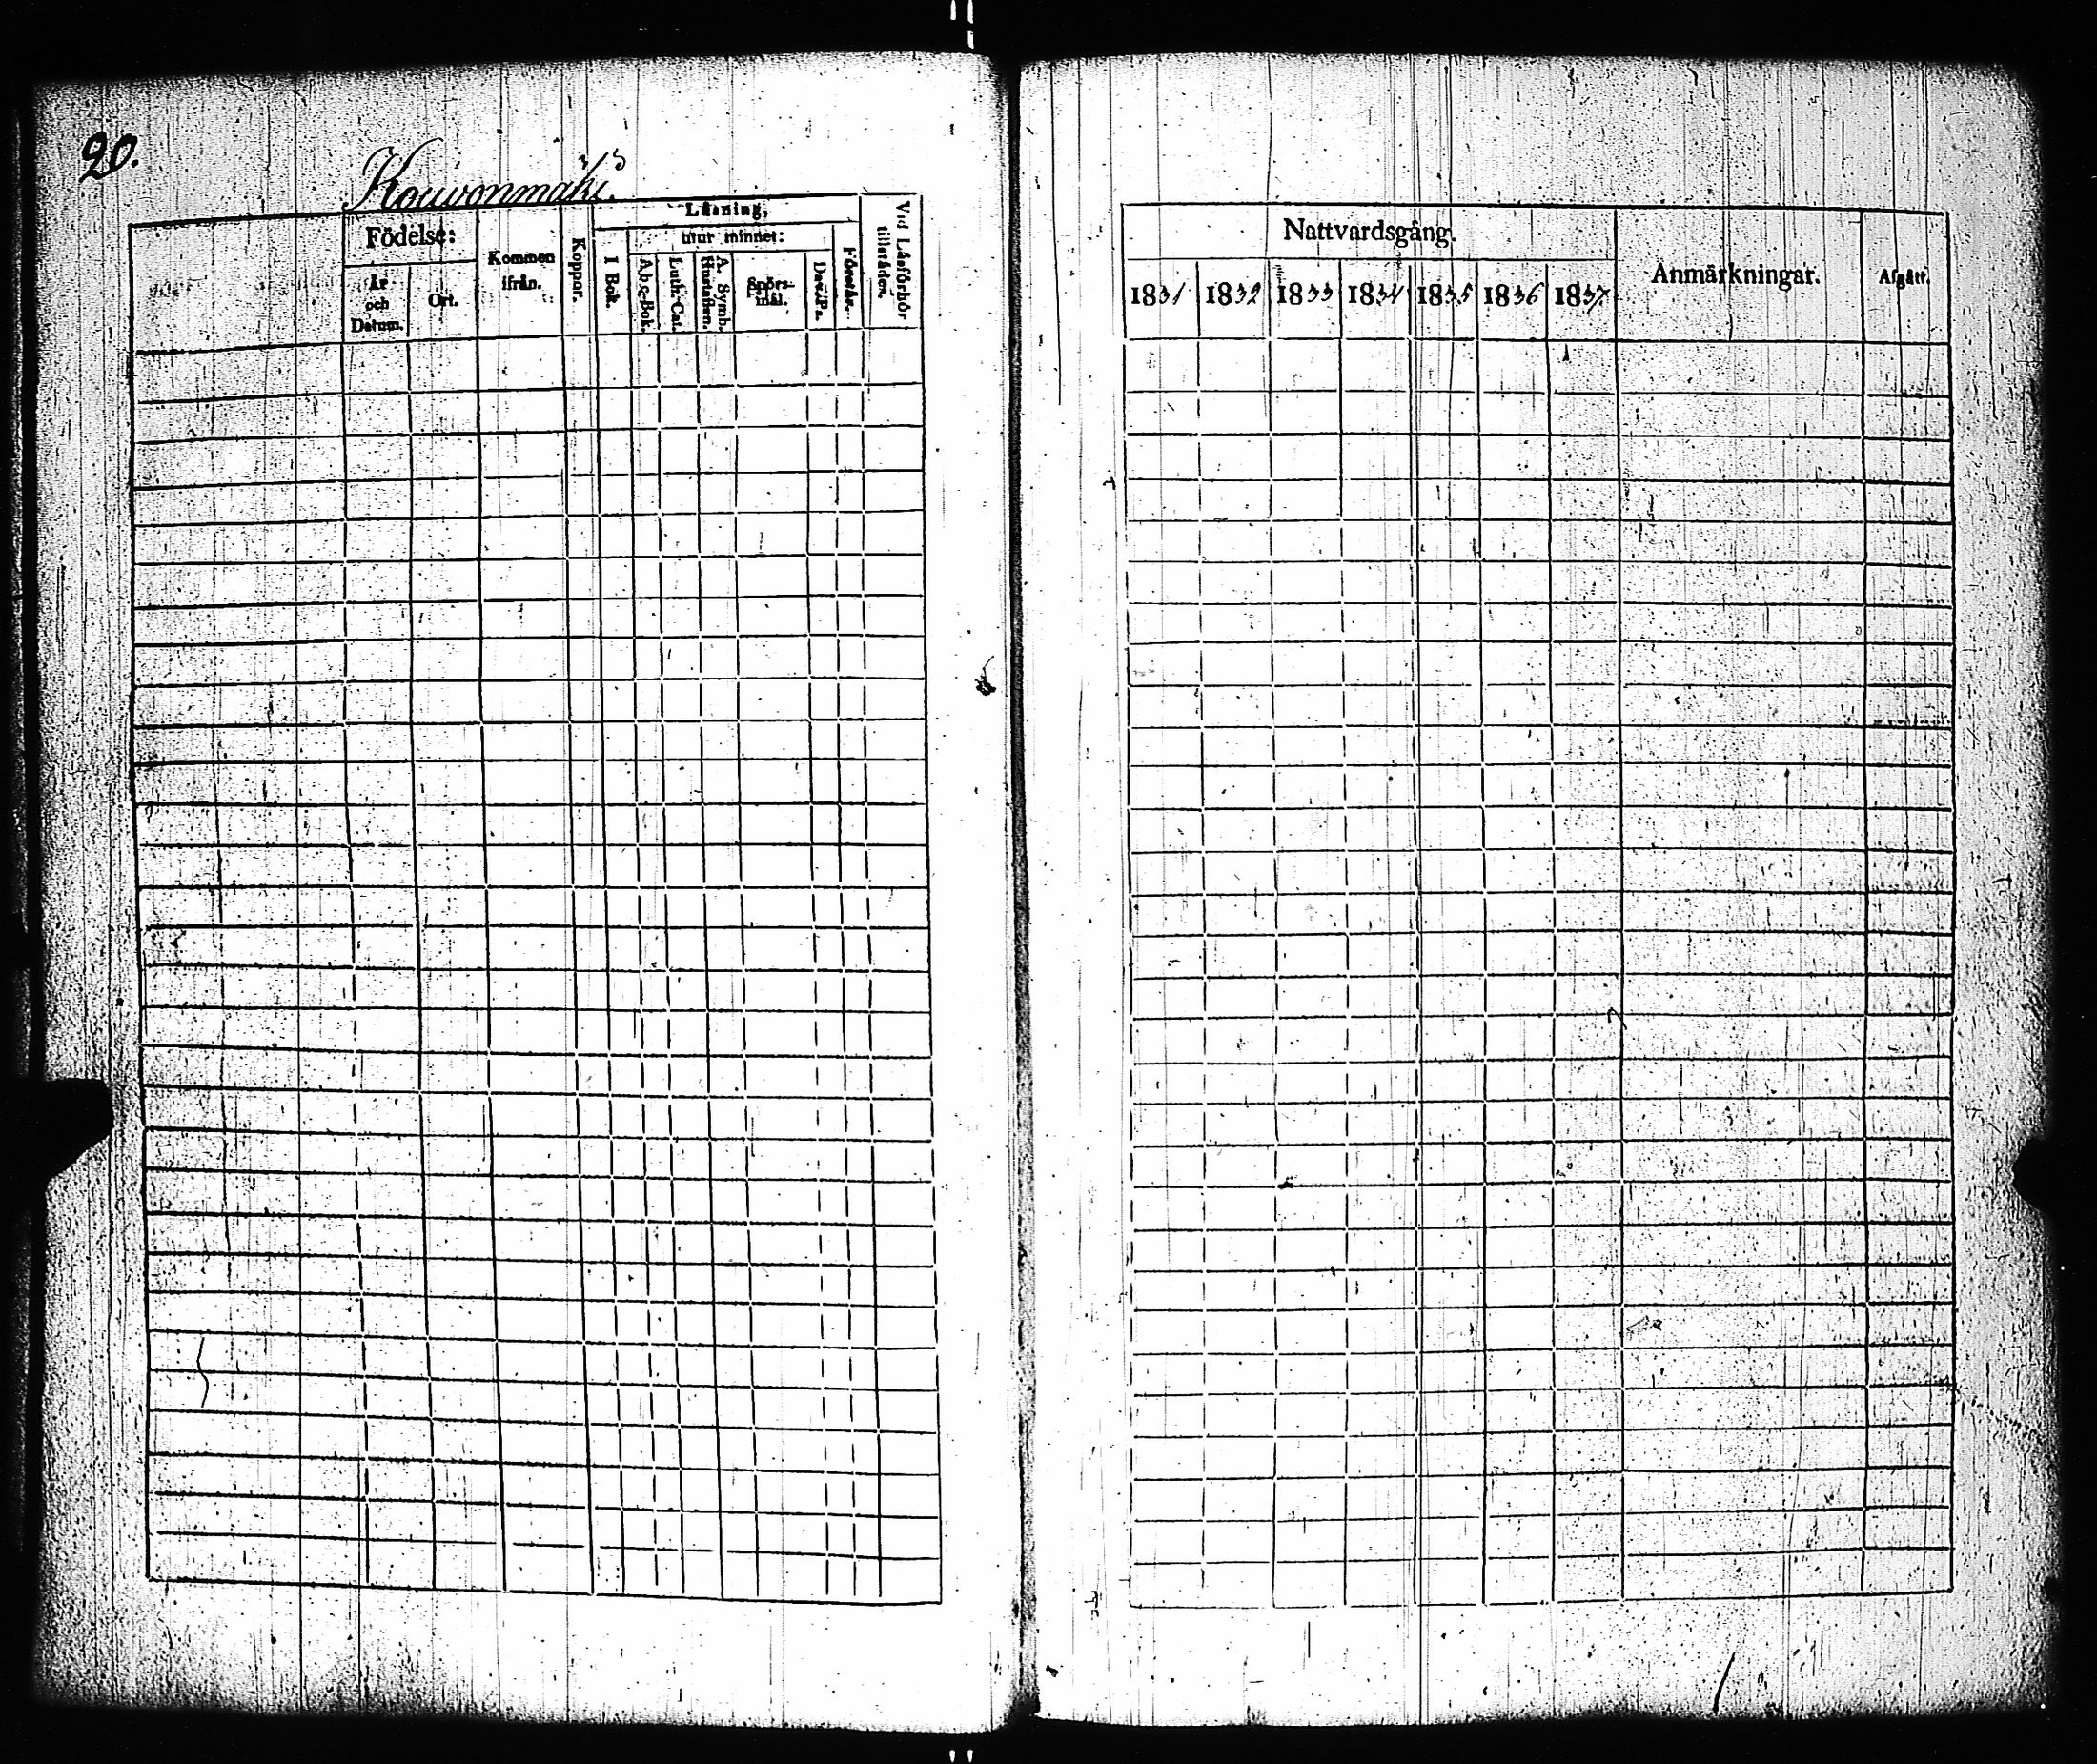 20.
Kouvonmäki.
Födelse:
År
och
Datum.
Ort.
Kommen
ifrån.
Koppor.
Läsning,
utur minnet:
I Bok.
A.b.c-Bok.
Luth. Cat.
A. Symb.
Hustaflan.
Spörs-
mål.
Dav. Ps.
Förstår.
Vid Läsförhör
tillstädes.
Nattvardsgång.
1831 1832 1833 1834 1835 1836 1837
Anmärkningar.
Afgått.